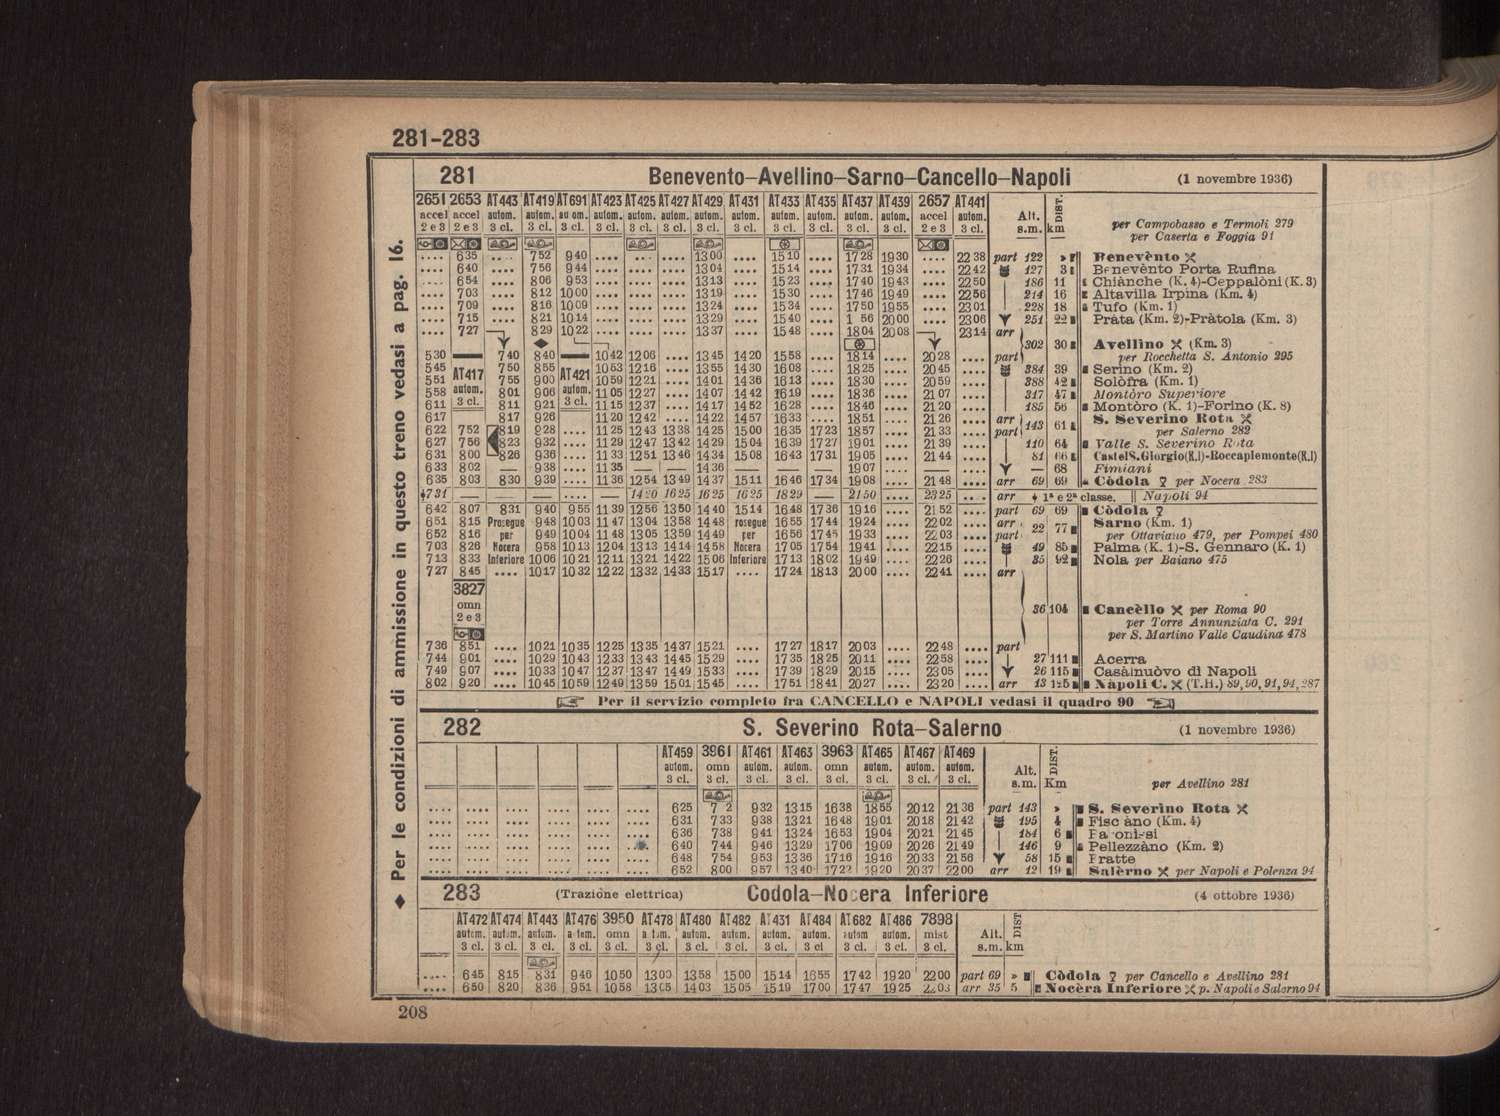 281-283
281 Benevento—Avellino—Sarno—Cancello—Napoli (1 novembre 1936)
2651 2653 AT443 AT419 AT691 AT423 AT425 AT427 AT429 AT431 AT433 AT435 AT437 AT439 2657 AT441
accel accel autom. autom. autom. autom. autom. autom. autom. autom. autom. autom. autom. accel autom. Alt. DIST.
2 e 3 2 e 3 3 cl. 3 cl. 3 cl. 3 cl. 3 cl. 3 cl. 3 cl. 3 cl. 3 cl. 3 cl. 3 cl. 3 cl. 2 e 3 3 cl. s.m. km
per Campobasso e Termoli 279
per Caserta e Foggia 91
.... 635 .... 752 940 .... .... .... 1300 .... 1510 .... 1728 1930 .... 2238 part 122 » Benevènto
.... 640 .... 756 944 .... .... .... 1304 .... 1514 .... 1731 1934 .... 2242 127 3 Benevènto Porta Rufina
.... 654 .... 806 953 .... .... .... 1313 .... 1523 .... 1740 1943 .... 2250 186 11 Chiànche (K. 4)-Ceppalòni (K. 3)
.... 703 .... 812 1000 .... .... .... 1319 .... 1530 .... 1746 1949 .... 2256 214 16 Altavilla Irpina (Km. 4)
.... 709 .... 816 1009 .... .... .... 1324 .... 1534 .... 1750 1955 .... 2301 228 18 Tufo (Km. 1)
.... 715 .... 821 1014 .... .... .... 1329 .... 1540 .... 1 56 2000 .... 2306 251 22 Pràta (Km. 2)-Pràtola (Km. 3)
.... 727 829 1022 .... .... .... 1337 .... 1548 .... 1804 2008 2314 arr
302 30 Avellino (Km. 3)
530 740 840 1042 1206 .... 1345 1420 1558 .... 1814 .... 2028 .... part per Rocchetta S. Antonio 295
545 AT417 750 855 AT421 1053 1216 .... 1355 1430 1608 .... 1825 .... 2045 .... 384 39 Serino (Km. 2)
551 autom. 755 900 autom. 1059 1221 .... 1401 1436 1613 .... 1830 .... 2059 .... 388 42 Solòfra (Km. 1)
558 3 cl. 801 906 3 cl. 1105 1227 .... 1407 1442 1619 .... 1836 .... 2107 .... 317 47 Montòro Superiore
611 811 921 1115 1237 .... 1417 1452 1628 .... 1846 .... 2120 .... 185 56 Montòro (K. 1)-Forino (K. 8)
617 817 926 1120 1242 .... 1422 1457 1633 .... 1851 .... 2126 .... arr S. Severino Rota
622 752 819 928 .... 1125 1243 1338 1425 1500 1635 1723 1857 .... 2133 .... part 143 61 per Salerno 282
627 756 823 932 .... 1129 1247 1342 1429 1504 1639 1727 1901 .... 2139 .... 110 64 Valle S. Severino Rota
631 800 826 936 .... 1133 1251 1346 1434 1508 1643 1731 1905 .... 2144 .... 81 66 Castel S. Giorgio (K.1)-Roccapiemonte (K.1)
633 802 — 938 .... 1135 — — 1436 1907 — .... — 68 Fimiani
635 803 830 939 .... 1136 1254 1349 1437 1511 1646 1734 1908 .... 2148 .... arr 69 69 Còdola per Nocera 283
731 — — — .... — 1420 1625 1625 1625 1829 — 2150 .... 2325 .... arr 1ª e 2ª classe. Napoli 94
642 807 831 940 955 1139 1256 1350 1440 1514 1648 1736 1916 .... 2152 .... part 69 69 Còdola
651 815 Prosegue 948 1003 1147 1304 1358 1448 rosegue 1655 1744 1924 .... 2202 .... arr 22 77 Sarno (Km. 1)
652 816 per 949 1004 1148 1305 1359 1449 per 1656 1745 1933 .... 2203 .... part per Ottaviano 479, per Pompei 480
703 826 Nocera 958 1013 1204 1313 1414 1458 Nocera 1705 1754 1941 .... 2215 .... 49 85 Palma (K. 1)-S. Gennaro (K. 1)
713 833 Inferiore 1006 1021 1211 1321 1422 1506 Inferiore 1713 1802 1949 .... 2226 .... 35 92 Nola per Baiano 475
727 845 .... 1017 1032 1222 1332 1433 1517 .... 1724 1813 2000 .... 2241 .... arr
3827
omn 36 104 Cancèllo per Roma 90
2 e 3 per Torre Annunziata C. 291
per S. Martino Valle Caudina 478
736 851 .... 1021 1035 1225 1335 1437 1521 .... 1727 1817 2003 .... 2248 .... part
744 901 .... 1029 1043 1233 1343 1445 1529 .... 1735 1825 2011 .... 2258 .... 27 111 Acerra
749 907 .... 1033 1047 1237 1347 1449 1533 .... 1739 1829 2015 .... 2305 .... 26 115 Casàlnuòvo di Napoli
802 920 .... 1045 1059 1249 1359 1501 1545 .... 1751 1841 2027 .... 2320 .... arr 13 125 Nàpoli C. (T.H.) 89, 90, 91, 94, 287
Per il servizio completo fra CANCELLO e NAPOLI vedasi il quadro 90
282 S. Severino Rota—Salerno (1 novembre 1936)
AT459 3961 AT461 AT463 3963 AT465 AT467 AT469
autom. omn autom. autom. omn autom. autom. autom. Alt. DIST.
3 cl. 3 cl. 3 cl. 3 cl. 3 cl. 3 cl. 3 cl. 3 cl. s.m. Km per Avellino 281
.... .... .... .... .... .... 625 7 2 932 1315 1638 1855 2012 2136 part 143 » S. Severino Rota
.... .... .... .... .... .... 631 733 938 1321 1648 1901 2018 2142 195 4 Fisc àno (Km. 4)
.... .... .... .... .... .... 636 738 941 1324 1653 1904 2021 2145 184 6
.... .... .... .... .... 640 744 946 1329 1706 1909 2026 2149 146 9 Pellezzàno (Km. 2)
.... .... .... .... .... .... 648 754 953 1336 1716 1916 2033 2156 58 15 Fratte
.... .... .... .... .... .... 652 800 957 1340 1722 1920 2037 2200 arr 12 19 Salèrno per Napoli e Polenza 94
283 (Trazione elettrica) Codola—Nocera Inferiore (4 ottobre 1936)
AT472 AT474 AT443 AT476 3950 AT478 AT480 AT482 AT431 AT484 AT682 AT486 7898
autom. autom. autom. autom. omn autom. autom. autom. autom. autom. autom autom. mist Alt. DIST
3 cl. 3 cl. 3 cl. 3 cl. 3 cl. 3 cl. 3 cl. 3 cl. 3 cl. 3 cl 3 cl. 3 cl. 3 cl. s.m. km
.... 645 815 831 946 1050 1300 1358 1500 1514 1655 1742 1920 2200 part 69 » Còdola per Cancello e Avellino 281
.... 650 820 836 951 1058 1305 1403 1505 1519 1700 1747 1925 2203 arr 35 5 Nocèra Inferiore p. Napoli e Salerno 94
208
◆ Per le condizioni di ammissione in questo treno vedasi a pag. 16.